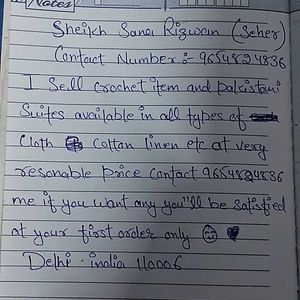 Notes
Sheikh Sana Rizwan (Seher)
Contact Number :- 9654824836
I Sell crochet item and pakistani
Suites available in all types of
Cloth Cotton linen etc at very
resonable price Contact 9654824836
me if you want any you'll be satisfied
at your first order only
Delhi - india 110006